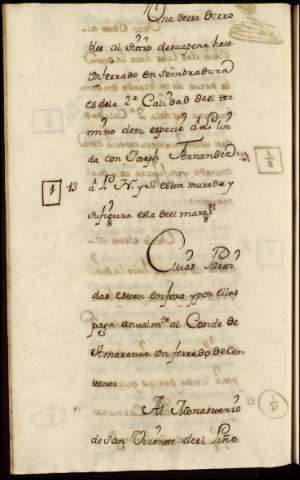 Una deesa de rro
bles al sitio de su capena hace
un ferrado en sembradura
es de la 2ª Calidad del ter
mino de su especie á L. lin
da con Joseph Fernandez
1 13 á P. N. y S. esta murada y
su figura esta del marg.n
Cuias Parti
das estan en foro y por ellas
paga anualm.te al Conde de
Amarante un ferrado de Cen
teno.
Al Monasterio
de San Vizente del Pino